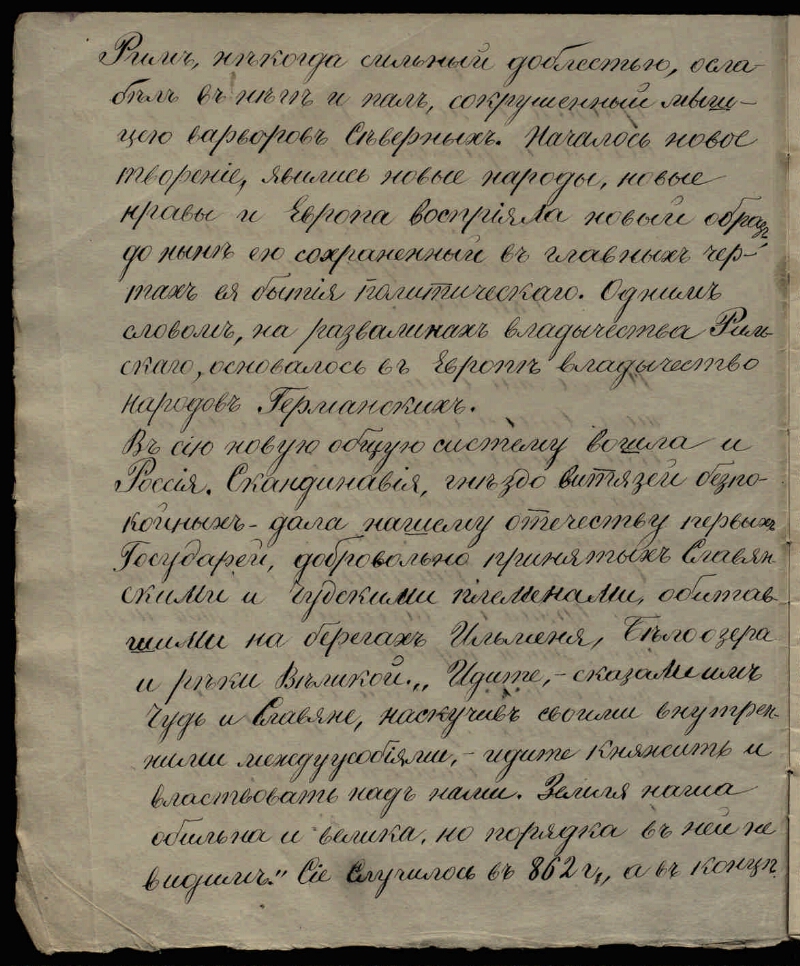 Римъ, нѣкогда сильный доблестью, осла-
бѣлъ въ нѣгѣ и палъ, сокрушенный мыш-
цею варворовъ Сѣверныхъ. Началось новое
твореніе, явились новые народы, новые
нравы и Европа воспріяла новый образъ,
до нынѣ ею сохраненный въ главныхъ чер-
тахъ ея бытія политическаго. Однимъ
словомъ, на развалинахъ владычества Рим-
скаго, основалось въ Европѣ владычество
народовъ Германскихъ.
Въ сію новую общую систему вошла и
Россія. Скандинавія, гнѣздо витязей безпо-
койныхъ - дала нашему отечеству первыхъ
Государей, добровольно принятыхъ Славян-
скими и Чудскими племенами, обитав-
шими на берегахъ Ильменя, Бѣлоозера
и рѣки Вѣликой. „Идите, - сказали имъ
Чудь и Славяне, наскучивъ своими внутрен-
ними междуусобіями, - идите княжить и
властвовать надъ нами. Земля наша
обильна и велика, но порядка въ ней не
видимъ." Сіе случилось въ 862 г., а въ концѣ